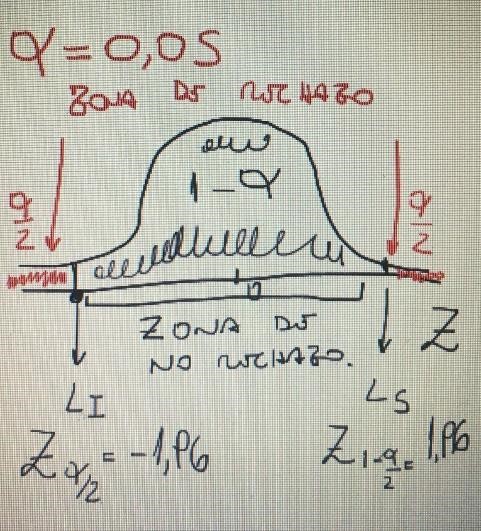 α = 0,05
ZONA DE RECHAZO
1 - α
α/2
α/2
0
ZONA DE
NO RECHAZO.
Z
LI
LS
Zα/2 = -1,96
Z1-α/2 = 1,96